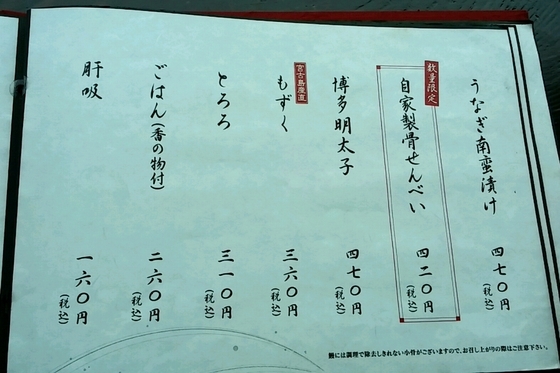 うなぎ南蛮漬け 四七〇円(税込)
数量限定
自家製骨せんべい 四二〇円(税込)
博多明太子 四七〇円(税込)
宮古島産直
もずく 三六〇円(税込)
とろろ 三一〇円(税込)
ごはん(香の物付) 二六〇円(税込)
肝吸 一六〇円(税込)
鰻には調理で除去しきれない小骨がございますので、お召し上がりの際はご注意下さい。